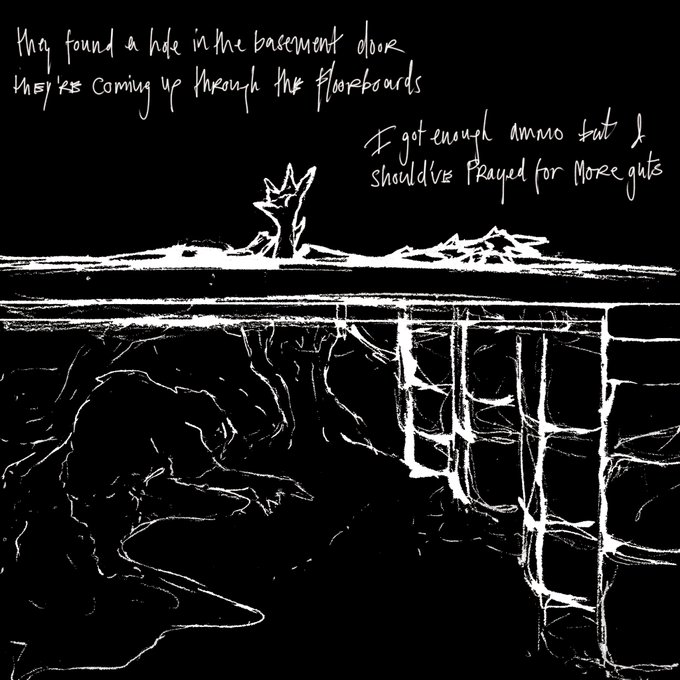 they found a hole in the basement door
they're coming up through the floorboards
I got enough ammo but I
should've prayed for more guts